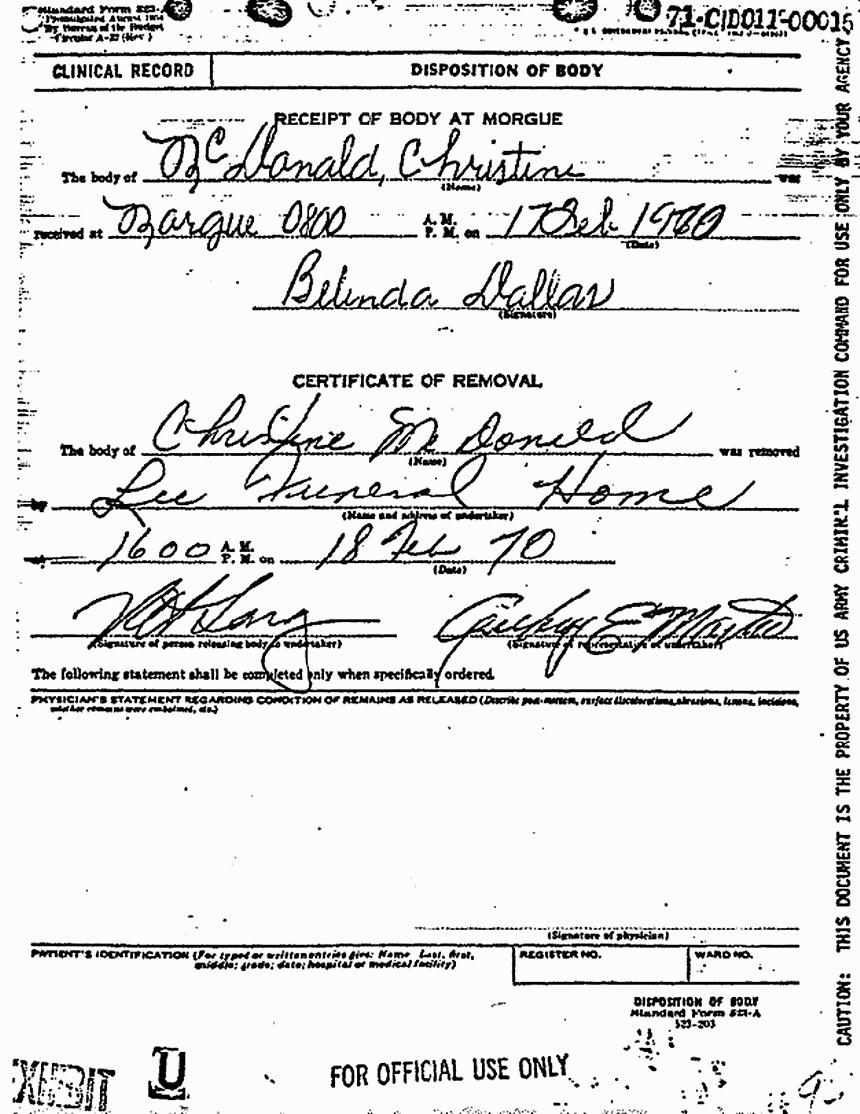 Standard Form 523-A
Promulgated August 1954
By Bureau of the Budget
Circular A-32 (Rev.)
71-CID011-00015
CLINICAL RECORD
DISPOSITION OF BODY
RECEIPT OF BODY AT MORGUE
The body of McDonald, Christine was
(Name)
received at Morgue 0800 A. M. P. M. on 17 Feb 1970
(Date)
Belinda Dallas
(Signature)
CERTIFICATE OF REMOVAL
The body of Christine McDonald was removed
(Name)
by Lee Funeral Home
(Name and address of undertaker)
at 1600 A. M. P. M. on 18 Feb 70
(Date)
(Signature of person releasing body to undertaker)
(Signature of representative of undertaker)
The following statement shall be completed only when specifically ordered.
PHYSICIAN'S STATEMENT REGARDING CONDITION OF REMAINS AS RELEASED (Describe post-mortem, surface discolorations, abrasions, lesions, incisions,
whether remains were embalmed, etc.)
(Signature of physician)
PATIENT'S IDENTIFICATION (For typed or written entries give: Name Last, first,
middle; grade; date; hospital or medical facility)
REGISTER NO.
WARD NO.
DISPOSITION OF BODY
Standard Form 523-A
523-203
EXHIBIT U
FOR OFFICIAL USE ONLY
CAUTION: THIS DOCUMENT IS THE PROPERTY OF US ARMY CRIMIN'L INVESTIGATION COMMAND FOR USE ONLY BY YOUR AGENCY